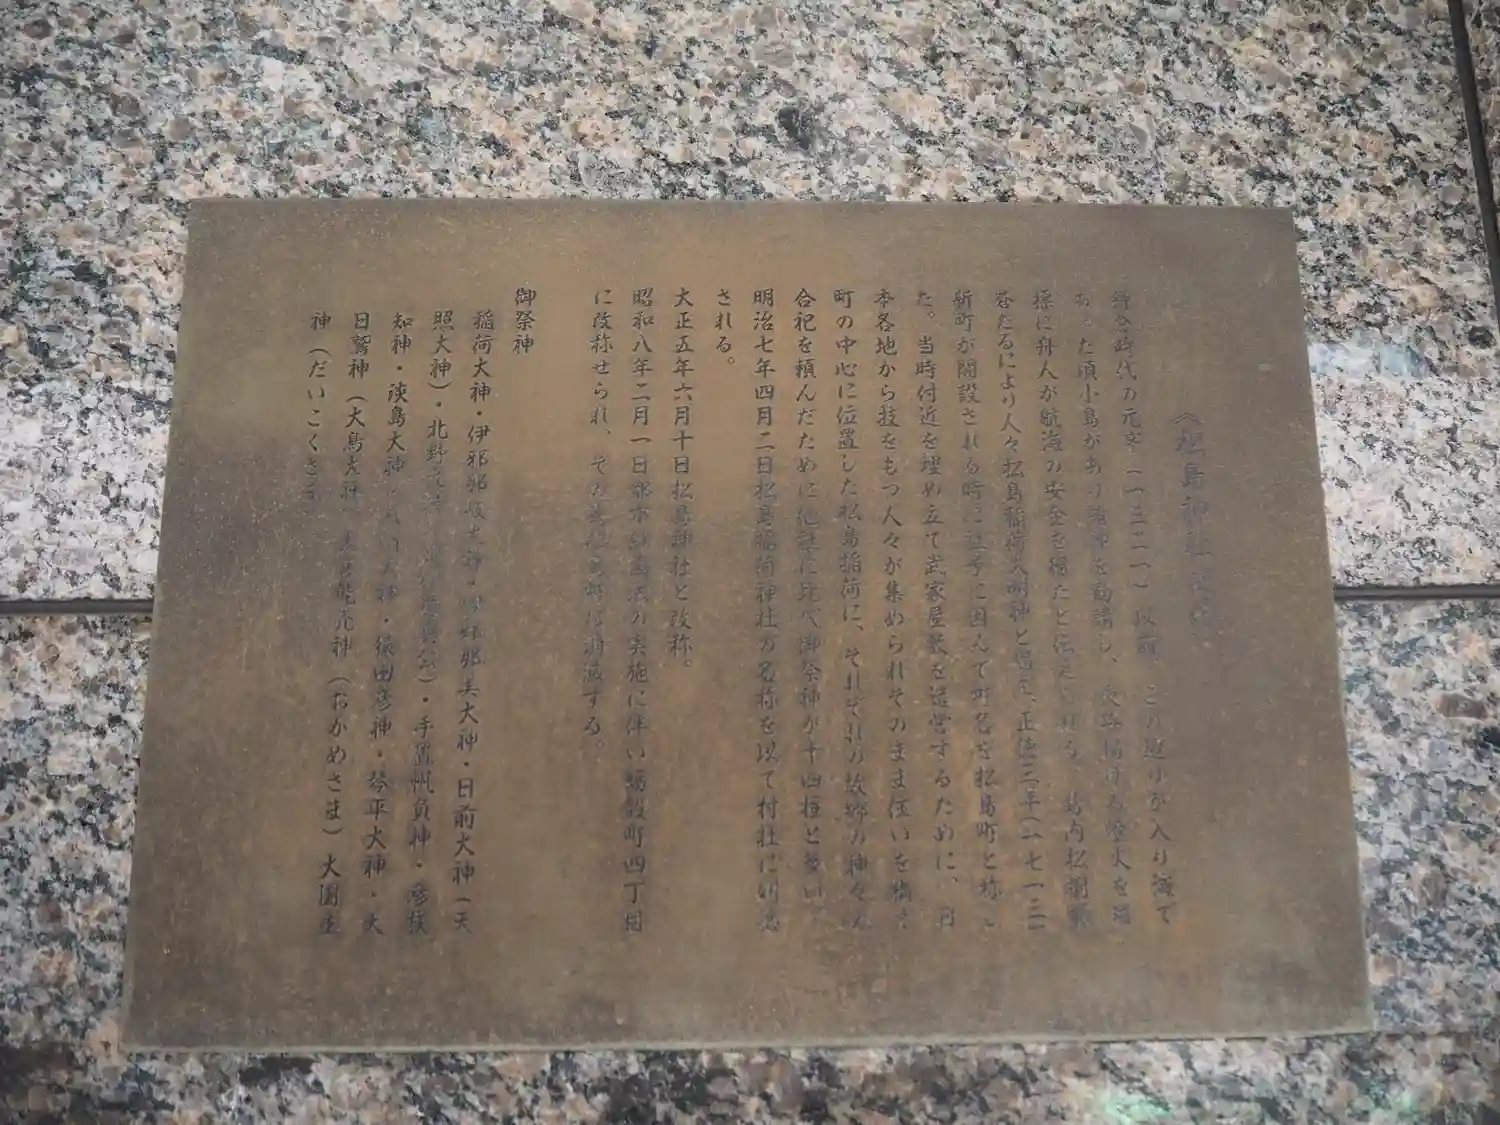 《松島神社
鎌倉時代の元享(一三二一)以前、この辺りが入り海で
あった頃小島があり諸神を勧請し、夜毎掲げる燈火を目
標に舟人が航海の安全を得たと伝えられる。島内松樹鬱
蒼たるにより人々松島稲荷大明神と唱え、正徳三年(一七一三)
新町が開設される時に社号に因んで町名を松島町と称し
た。当時付近を埋め立て武家屋敷を造営するために、日
本各地から技をもつ人々が集められそのまま住いを構え
町の中心に位置した松島稲荷に、それぞれの故郷の神々の
合祀を頼んだために他社に比べ御祭神が十四柱と多い。
明治七年四月二日松島稲荷神社の名称を以て村社に列格
される。
大正五年六月十日松島神社と改称。
昭和八年二月一日都市計画法の実施に伴い蛎殻町四丁目
に改称せられ、その為松島町は消滅する。
御祭神
稲荷大神・伊邪那岐大神・伊邪那美大神・日前大神(天
照大神)・北野大神 )・手置帆負神・彦狭
知神・淡島大神・八幡大神・猿田彦神・琴平大神・大
日鷲神(大鳥大神)・大宮能売神(おかめさま)大国主
神(だいこくさま)